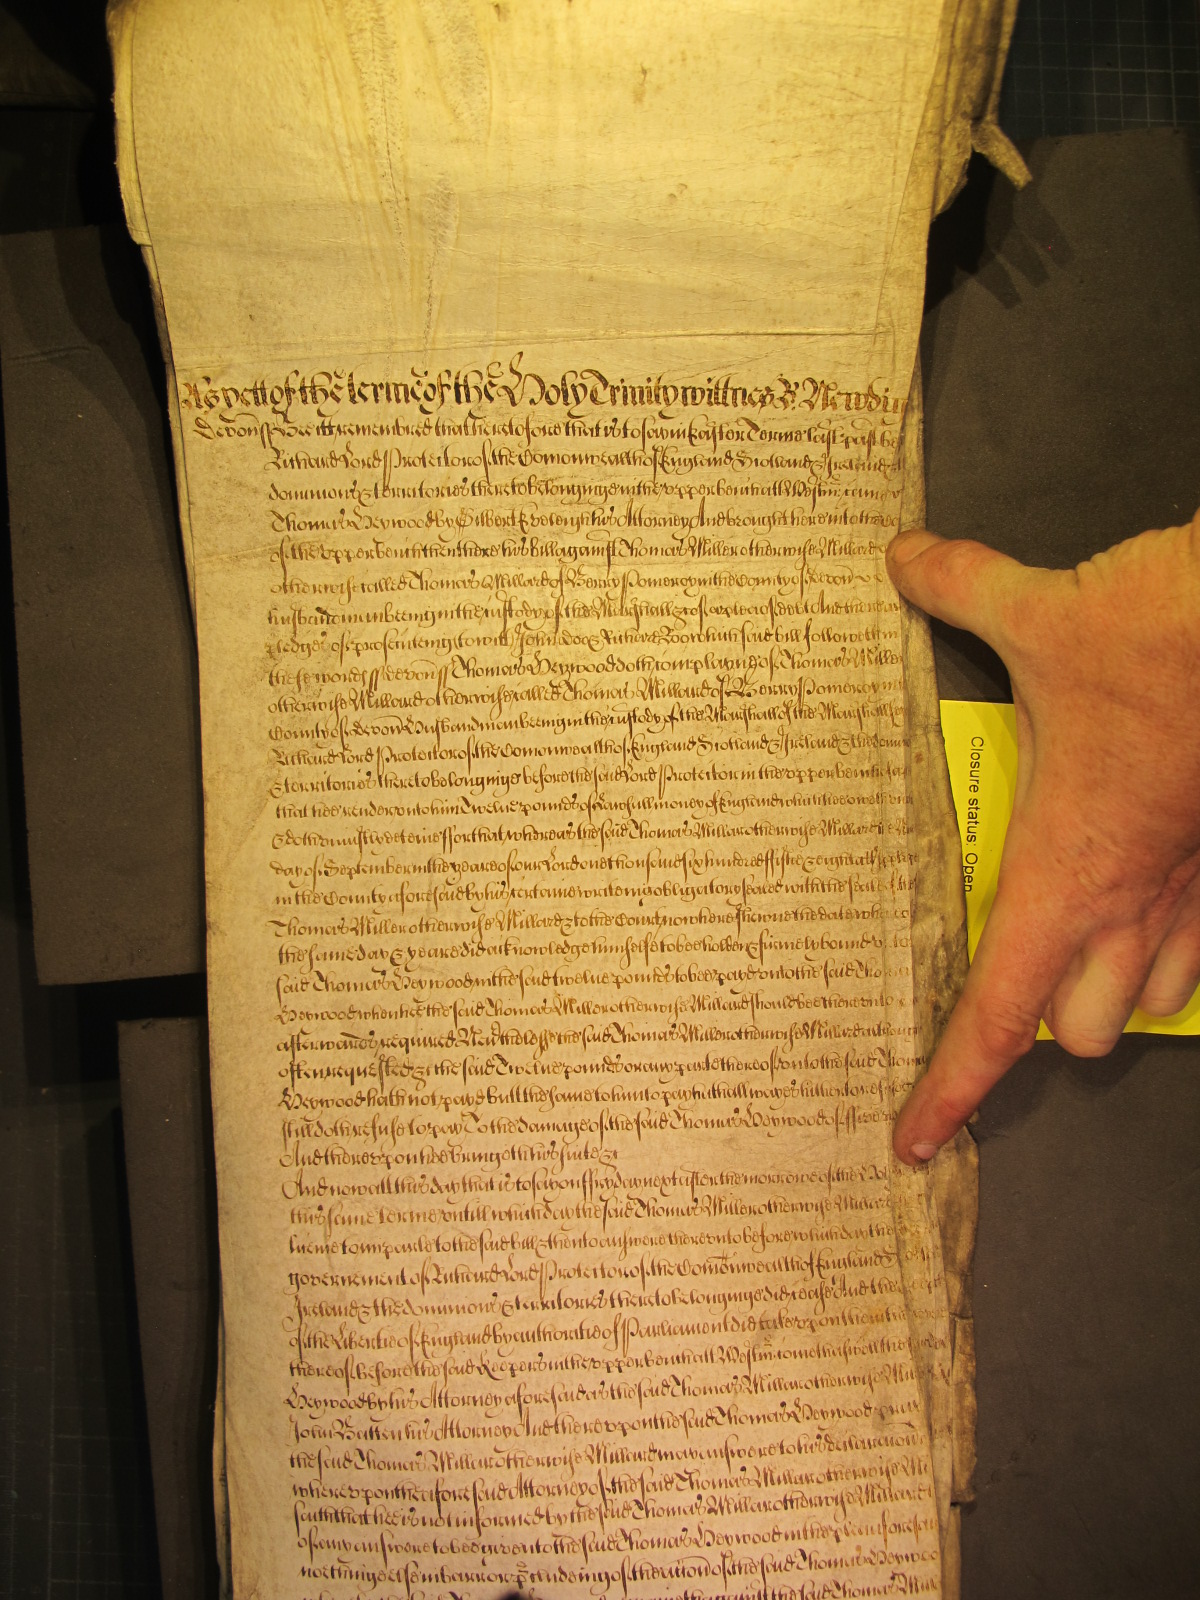 As yett of the terme of the Holy Trinity wittnes R: Newdi
Devon ss Bee itt remembred that heretofore that is to say in Easter Terme last past
Richard Lord Protector of the Comonwealth of England Scotland & Ireland &
dominions & territories thereto belonginge in the upper bench att Westm came
Thomas Heywood by Gilbert his Attorney And brought here into the
of the upper bench then there his bill against Thomas Miller otherwise Millard
otherwise called Thomas Millard of Berry Pomeroy in the County of Devon
husbandman beeing in the custody of the Marshall &c of a plea of debt And there are
pledges of prosecuteing to witt John doo & Richard Roo which said bill followeth in
these words ss devon ss Thomas Heywood doth complayne of Thomas Miller
otherwise Millard otherwise called Thomas Millard of Berry Pomeroy in
County of devon Husbandman beeing in the custody of the Marshall of the Marshall
Richard Lord Protector of the Comonwealth of England Scotland & Ireland & the
& territories thereto belonginge before the said Lord Protector in the upper bench
that hee render unto him Twelve pounds of lawfull money of England which hee oweth
& doth uniustly deteine ffor that whereas the said Thomas Millar otherwise Millard
day of September in the yeare of our Lord one thousand six hundred fiftie & eight att
in the County aforesaid by his certaine writeing obligatory sealed with the seale of the
Thomas Miller otherwise Millard & to the Court now here shewne the date whereof
the same day & yeare did acknowledge himselfe to bee holden & firmely bound
said Thomas Heywood in the said twelve pounds to bee payd unto the said
Heywood when hee the said Thomas Miller otherwise Millard should bee thereunto
afterwards required Neverthelesse the said Thomas Miller otherwise Millard
often requested &c the said Twelve pounds or any parte thereof unto the said Thomas
Heywood hath not payd butt the same to him to pay hath allwayes hitherto
still doth refuse to pay To the damage of the said Thomas Heywood of
And thereupon hee bringeth his suite &c
And now att this day that is to say on ffryday next after the morrowe of the
this same terme untill which day the said Thomas Miller otherwise Millard
lycence to imparle to the said bill & then to answere thereunto before which day the
governement of Richard Lord Protector of the Comonwealth of England
Ireland & the dominions & territories thereto belonginge did cease And the
of the Libertie of England by authoritie of Parliament did take upon them
thereof before the said Keepers in the upper bench att Westm come as well the
Heywood by his Attorney aforesaid as the said Thomas Millar otherwise
John his Attorney And thereupon the said Thomas Heywood
the said Thomas Millar otherwise Millard may answere to his declaracon
whereupon the aforesaid Attorney of the said Thomas Millar otherwise
saith that hee is not informed by the said Thomas Millar otherwise Millard
of any answere to bee given to the said Thomas Heywood in the plea aforesaid
nothinge else in barr or pcludeing of the accon of the said Thomas Heywood